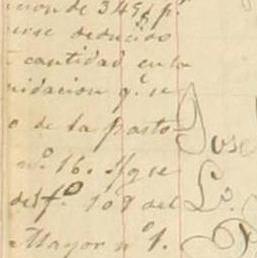 cion de 345, p.s
erse deducido
cantidad en la
uidacion q.e se
o de la pasto-
n.o 16. Y q.e se
del f.o 108 del
Mayor n.o 1.
Jose
L.o